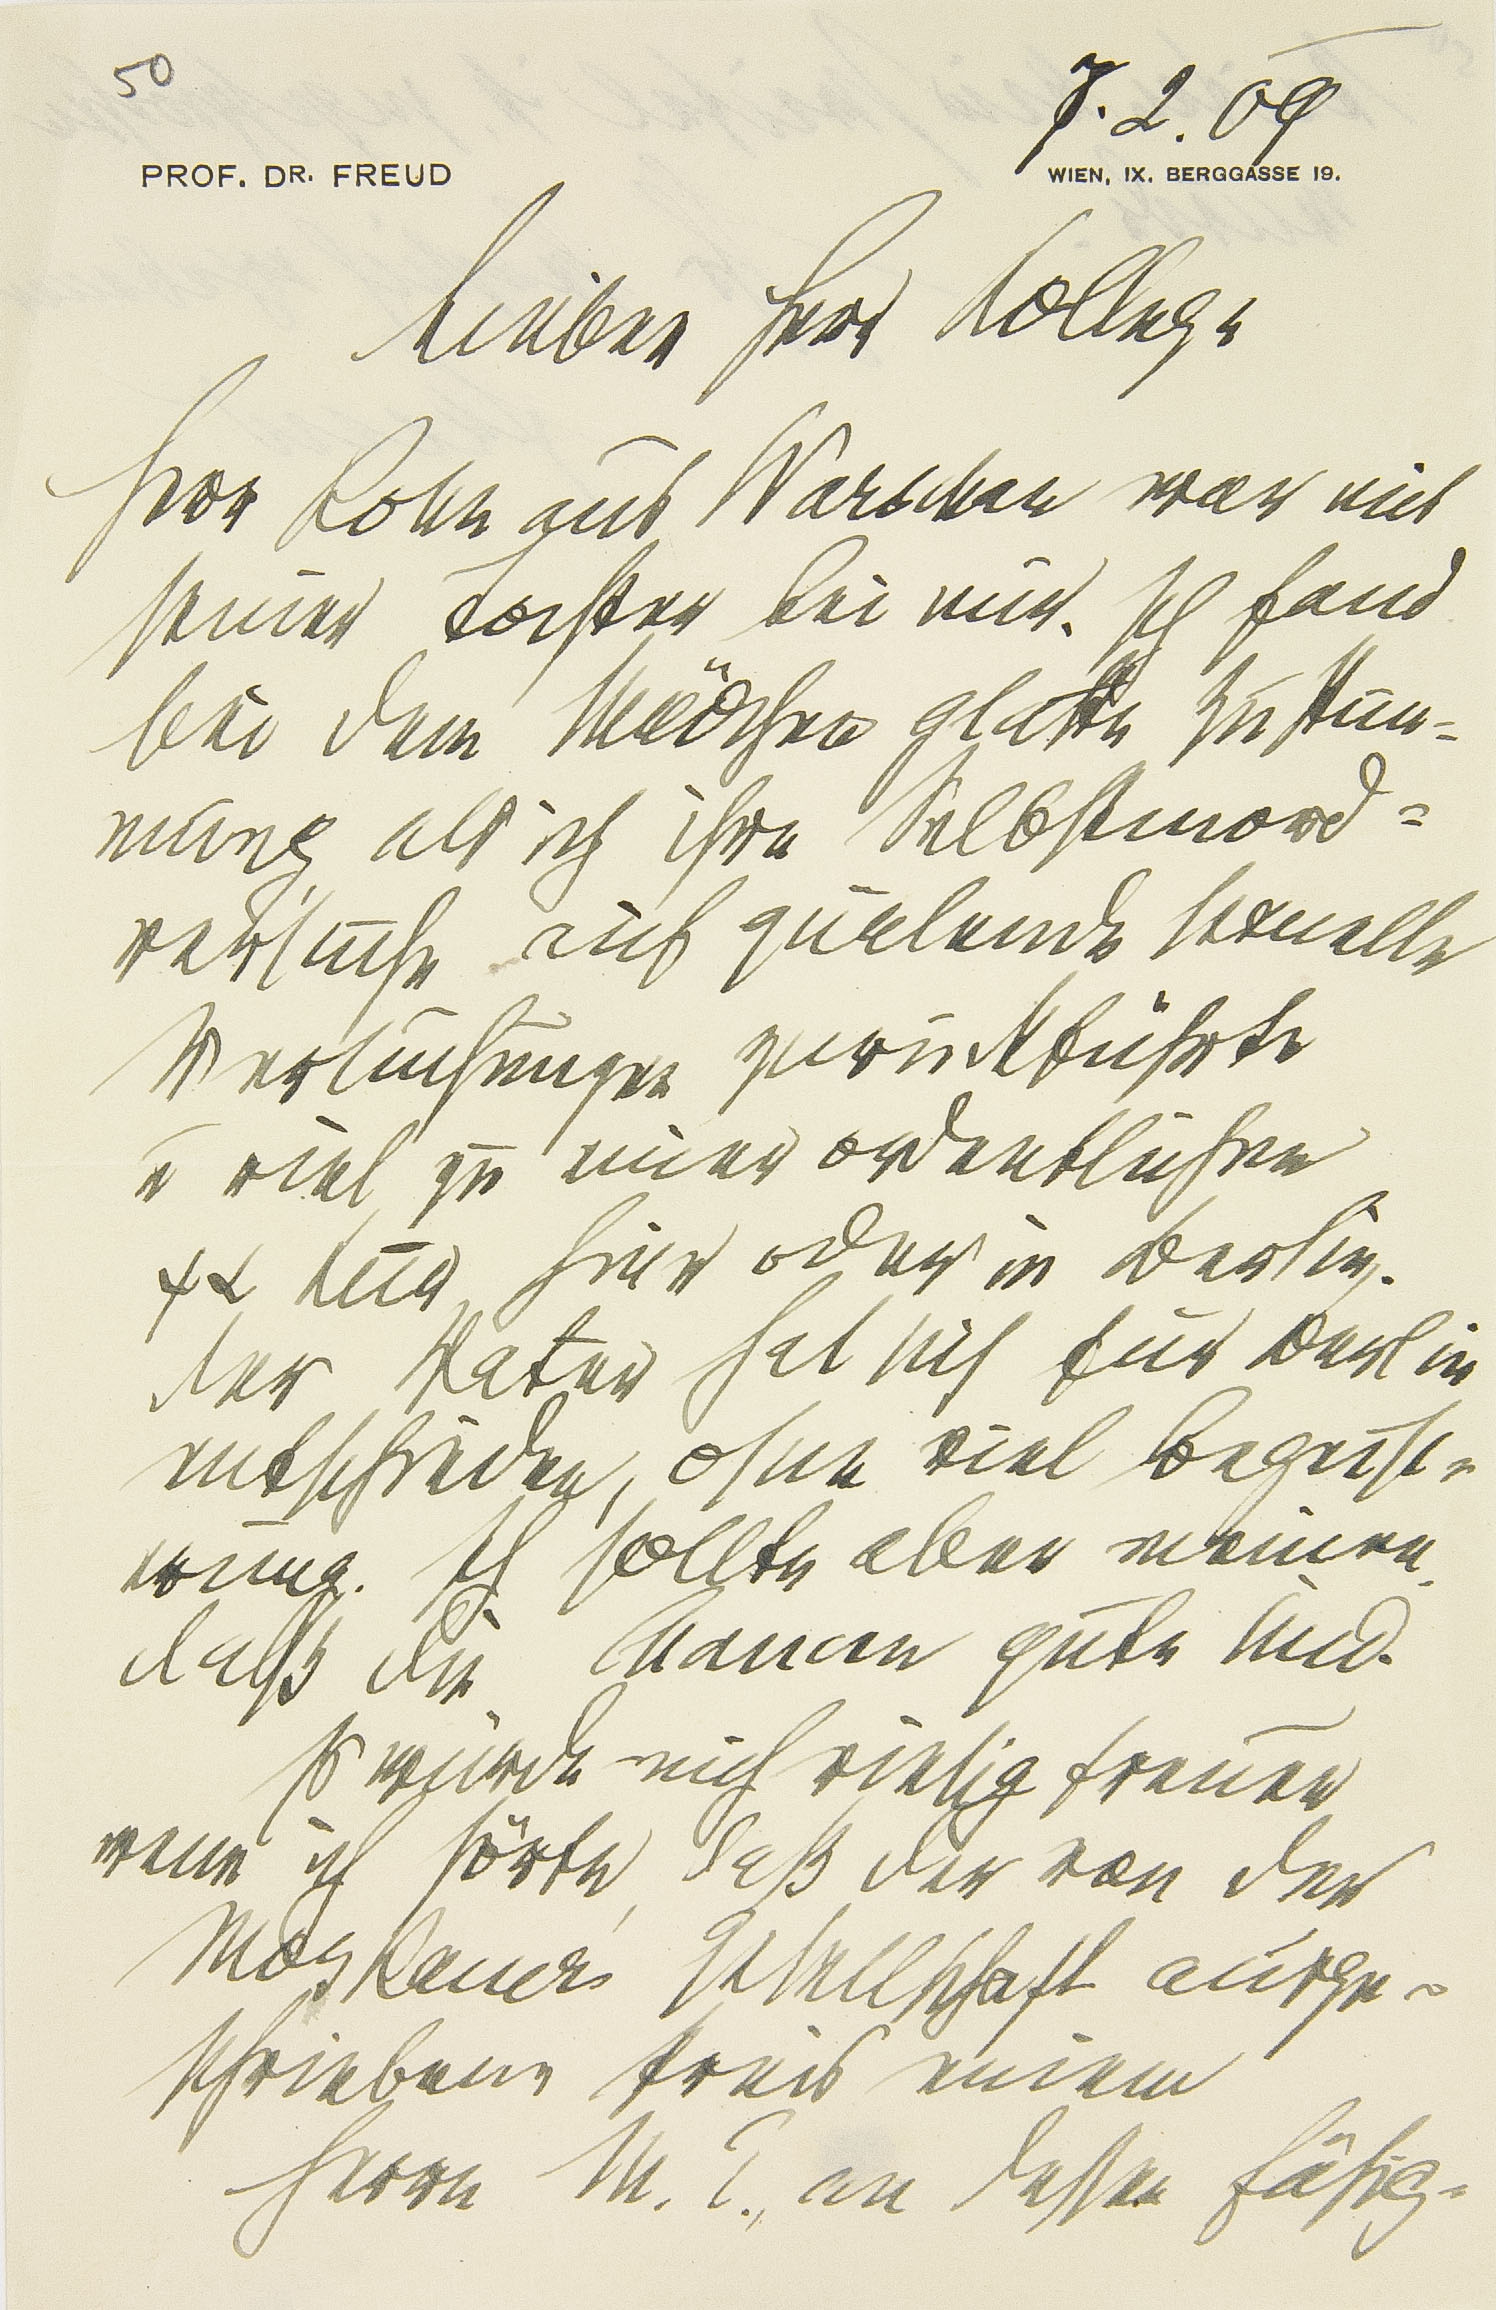 50
7. 2. 09
PROF. DR. FREUD
WIEN, IX. BERGGASSE 19.
Lieber Herr Kollege
Herr Kohn aus Warschau war mit
seiner Tochter bei mir. Ich fand
bei dem Mädchen glatte Zustim-
mung als ich ihre Selbstmord-
versuche auf quälende sexuelle
Versuchungen zurückführte
u riet zu einer ordentlichen
Kur hier oder in Berlin.
Der Vater hat sich für Berlin
entschieden, ohne viel Begeist-
erung. Ich sollte aber meinen
daß die Chancen gute sind.
Es würde mich riesig freuen
wenn ich hörte, daß der von der
Moskauer Gesellschaft ausge-
schriebene Preis einem
Herrn M. E., an dessen Fähig-